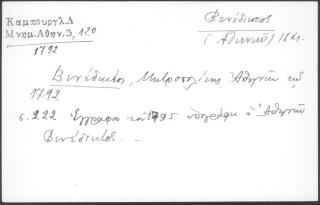 Καμπούργλ. Δ
Μνημ. Αθην. 3, 120
1792
Βενέδικτος
(Αθηνῶν)
Βενέδικτος, Μητροπολίτης Ἀθηνῶν τῷ
1792
σ. 222 Ἔγγραφα τοῦ 1795 ὑπογράφει ὁ Ἀθηνῶν
Βενέδικτος.